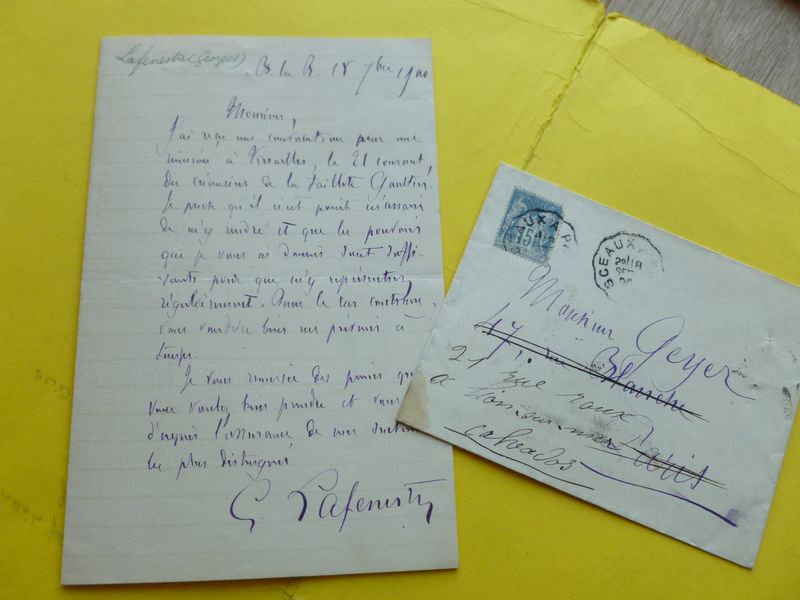 Lafenestre (Georges)
B. la R. 18 7bre 1900
Monsieur,
J'ai reçu une convocation pour une
réunion à Versailles, le 21 courant,
des créanciers de la faillite Gaultier.
Je pense qu'il n'est point nécessaire
de m'y rendre et que les pouvoirs
que je vous ai donnés sont suffi-
sants pour que m'y représentiez
régulièrement. Dans le cas contraire,
vous voudrez bien me prévenir à
temps.
Je vous remercie des peines que
vous voulez bien prendre et vous
d'agréer l'assurance de mes
les plus distingués
G. Lafenestre
15
SCEAUX A P
Monsieur Geyer
47, rue Blanche
21 rue
a
Calvados
Paris